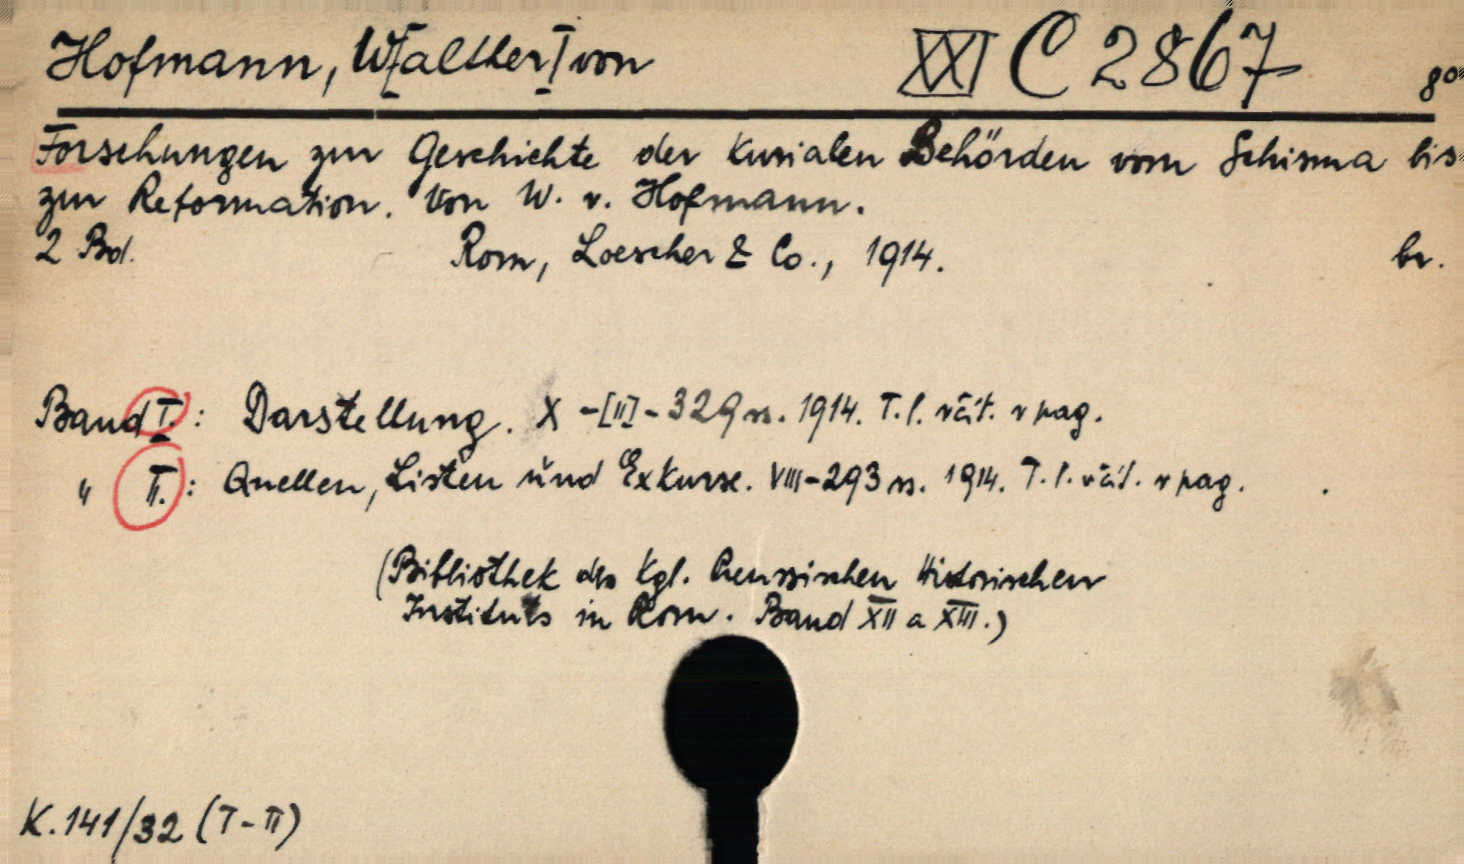 Hofmann, W[alther] von XXI C 2867 8°
Forschungen zur Geschichte der Kurialen Behörden vom Schisma bis
zur Reformation. Von W. v. Hofmann.
2 Bd. Rom, Loescher & Co., 1914. br.
Band I.: Darstellung. X-[II]-329 ss. 1914. T. l. včít. v pag.
" II.: Quellen, Listen und Exkurse. VIII-293 ss. 1914. T. l. včít. v pag.
(Bibliothek des Kgl. Preussischen Historischen
Instituts in Rom. Band XII a XIII.)
K. 141/32 (I-II)